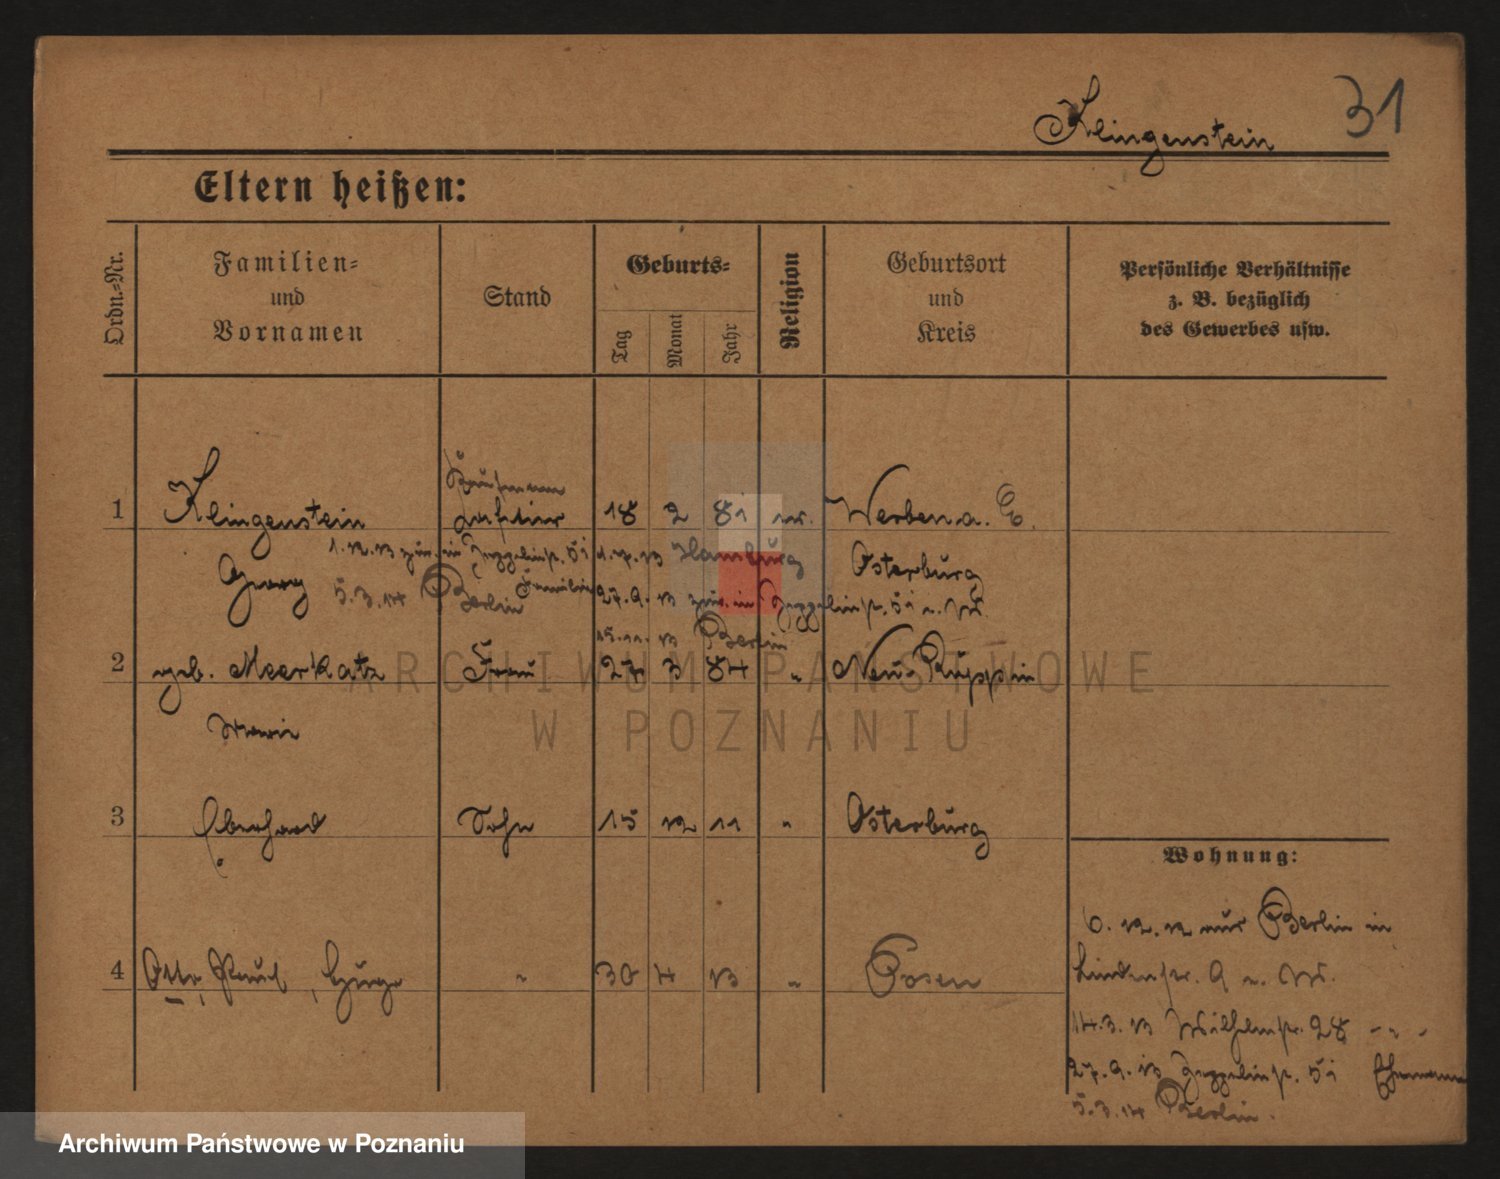 31
Klingenstein
Eltern heißen:
Ordn.-Nr.
Familien-
und
Vornamen
Stand
Geburts-
Tag
Monat
Jahr
Religion
Geburtsort
und
Kreis
Persönliche Verhältnisse
z. B. bezüglich
des Gewerbes usw.
Kaufmann
1 Klingenstein 18 2 81 Werben a. E.
1.12.13 zur. in Zeppelinstr. 5 1.7.13 Hamburg Osterburg
Georg 5.3.14 Berlin Familie 27.9.13 zur. in Zeppelinstr. 5
15.11.13 Berlin
2 geb. Meerkatz Frau 27 3 84 " Neu-Ruppin
ARCHIWUM PAŃSTWOWE
W POZNANIU
3 Eberhard Sohn 15 12 11 " Osterburg
Wohnung:
6.12.12 aus Berlin in
4 Otto, Paul, " 30 4 13 " Posen
Lindenstr. 9
14.3.13 Wilhelmstr. 28 - " -
27.9.13 Zeppelinstr. 5 Ehemann
5.3.14 Berlin.
Archiwum Państwowe w Poznaniu